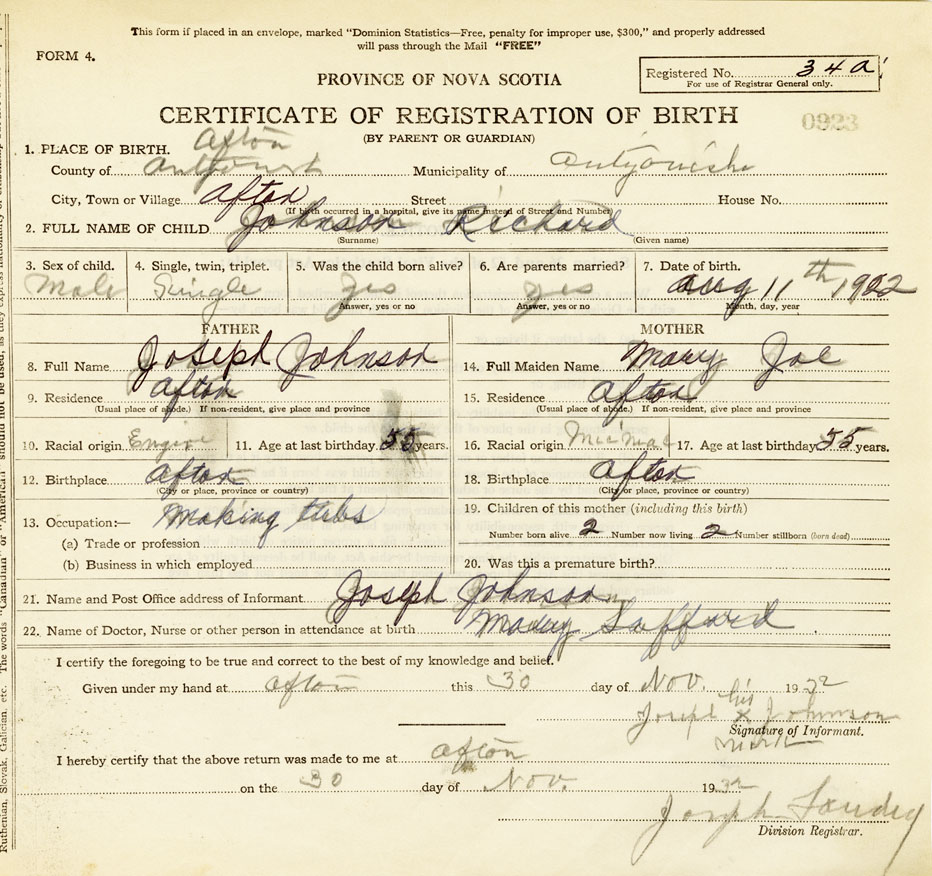 This form if placed in an envelope, marked "Dominion Statistics—Free, penalty for improper use, $300," and properly addressed
will pass through the Mail "FREE"
FORM 4.
Registered No. 34a
For use of Registrar General only.
PROVINCE OF NOVA SCOTIA
CERTIFICATE OF REGISTRATION OF BIRTH
0923
(BY PARENT OR GUARDIAN)
1. PLACE OF BIRTH. Afton
County of Municipality of
City, Town or Village Afton Street House No.
(If birth occurred in a hospital, give its name instead of Street and Number)
2. FULL NAME OF CHILD Johnson Richard
(Surname) (Given name)
3. Sex of child. 4. Single, twin, triplet. 5. Was the child born alive? 6. Are parents married? 7. Date of birth.
Male Single Yes Yes Aug 11th
Answer, yes or no Answer, yes or no Month, day, year
FATHER MOTHER
8. Full Name Joseph Johnson 14. Full Maiden Name Mary Joe
9. Residence Afton 15. Residence Afton
(Usual place of abode.) If non-resident, give place and province (Usual place of abode.) If non-resident, give place and province
10. Racial origin 11. Age at last birthday 55 years. 16. Racial origin 17. Age at last birthday 55 years.
12. Birthplace Afton 18. Birthplace Afton
(City or place, province or country) (City or place, province or country)
13. Occupation:— Making tubs 19. Children of this mother (including this birth)
(a) Trade or profession Number born alive 2 Number now living 2 Number stillborn (born dead)
(b) Business in which employed 20. Was this a premature birth?
21. Name and Post Office address of Informant Joseph Johnson
22. Name of Doctor, Nurse or other person in attendance at birth
I certify the foregoing to be true and correct to the best of my knowledge and belief.
Given under my hand at Afton this 30 day of Nov. 1932
his
Joseph X Johnson
Signature of Informant.
mark
I hereby certify that the above return was made to me at Afton
on the 30 day of Nov. 1932
Joseph
Division Registrar.